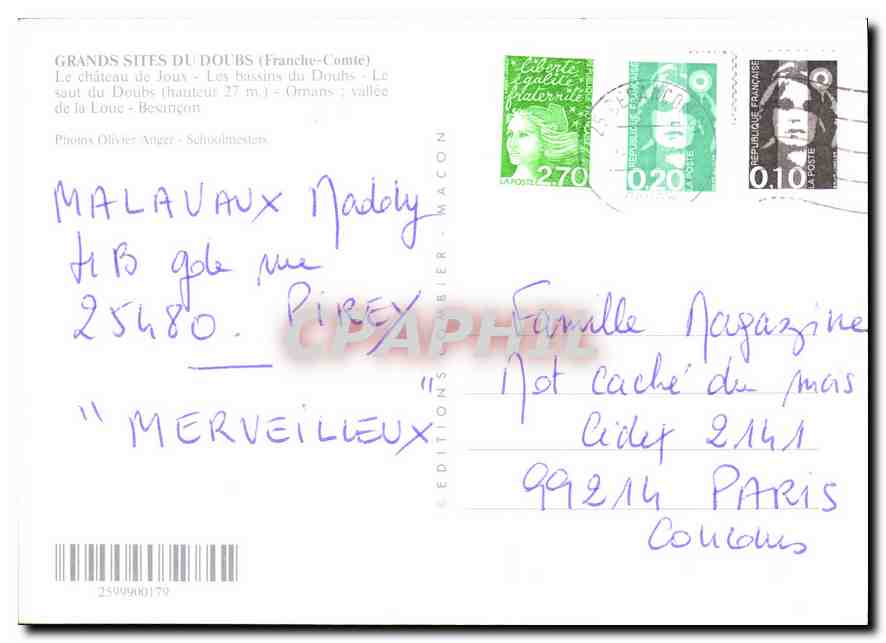 GRANDS SITES DU DOUBS (Franche-Comte)
Le château de Joux - Les bassins du Doubs - Le
saut du Doubs (hauteur 27 m.) - Ornans ; vallée
de la Loue - Besançon
Photos Olivier Anger - Schoolmesters
liberté
égalité
fraternité
2,70
LA POSTE
RÉPUBLIQUE FRANÇAISE
0,20
LA POSTE
RÉPUBLIQUE FRANÇAISE
0,10
LA POSTE
MALAVAUX Maddy
4B gde rue
25480. PIREY
" MERVEILLEUX "
© EDITIONS COMBIER - MACON
CPAPHIL
Famille Magazine
Mot caché du mois
Cidex 2141
99214 PARIS
Concours
2599900179